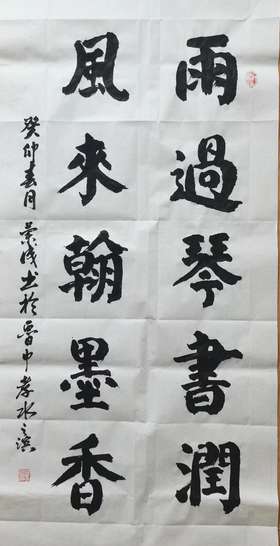 雨過琴書潤
風來翰墨香
癸卯春月景成书於魯中孝水之濱